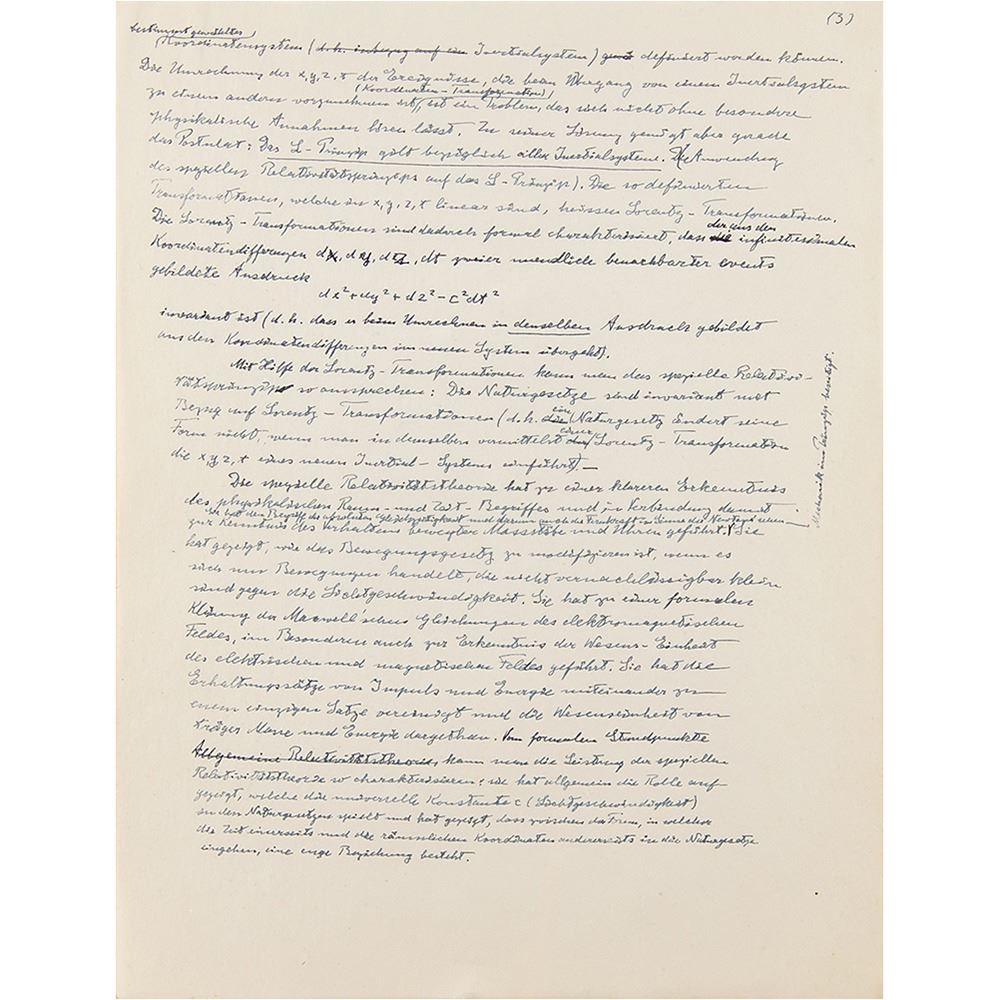 (3)
bestimmt gewähltes
Koordinatensystem (d.h. inbezug auf ein Inertialsystem) definiert werden können.
Die Umrechnung der x, y, z, t der Ereignisse, die beim Übergang von einem Inertialsystem
(Koordinaten-Transformation)
zu einem anderen vorzunehmen ist, ist ein Problem, das sich nicht ohne besondere
physikalische Annahmen lösen lässt. Zu seiner Lösung genügt aber gerade
das Postulat: Das L-Prinzip gilt bezüglich aller Inertialsysteme. (Anwendung
des speziellen Relativitätsprinzips auf das L-Prinzip). Die so definierten
Transformationen, welche in x, y, z, t linear sind, heissen Lorentz-Transformationen.
der aus den
Die Lorentz-Transformationen sind dadurch formal charakterisiert, dass infinitesimalen
Koordinatendifferenzen dx, dy, dz, dt zweier unendlich benachbarter events
gebildete Ausdruck
dx² + dy² + dz² - c²dt²
invariant ist (d.h. dass er beim Umrechnen in denselben Ausdruck gebildet
aus den Koordinatendifferenzen im neuen System übergeht).
Mit Hilfe der Lorentz-Transformationen kann man das spezielle Relativi-
tätsprinzip so aussprechen: Die Naturgesetze sind invariant mit
Bezug auf Lorentz-Transformationen (d.h. die Naturgesetz ändert seine
ein
einer
Form nicht, wenn man in demselben vermittelst Lorentz-Transformation
die x, y, z, t eines neuen Inertial-Systems einführt).—
Die spezielle Relativitätstheorie hat zu einer klareren Erkenntnis
des physikalischen Raum- und Zeit-Begriffes und in Verbindung damit
Sie hat den Begriff der absoluten Gleichzeitigkeit und darum auch die Fernkraft im Sinne der Newton'schen
zur Kenntnis des Verhaltens bewegter Massstäbe und Uhren geführt. Sie
Mechanik im Prinzip beseitigt.
hat gezeigt, wie das Bewegungsgesetz zu modifizieren ist, wenn es
sich um Bewegungen handelt, die nicht vernachlässigbar klein
sind gegen die Lichtgeschwindigkeit. Sie hat zu einer formalen
Klärung der Maxwell'schen Gleichungen des elektromagnetischen
Feldes, im Besonderen auch zur Erkenntnis der Wesens-Einheit
des elektrischen und magnetischen Feldes geführt. Sie hat die
Erhaltungssätze von Impuls und Energie miteinander zu
einem einzigen Satze vereinigt und die Wesenseinheit von
träger Masse und Energie dargethan. Vom formalen Standpunkte
Allgemeine Relativitätstheorie, kann man die Leistung der speziellen
Relativitätstheorie so charakterisieren: sie hat allgemein die Rolle auf-
gezeigt, welche die universelle Konstante c (Lichtgeschwindigkeit)
in den Naturgesetzen spielt und hat gezeigt, dass zwischen der Form, in welcher
die Zeit einerseits und die räumlichen Koordinaten andererseits in die Naturgesetze
eingehen, eine enge Beziehung besteht.